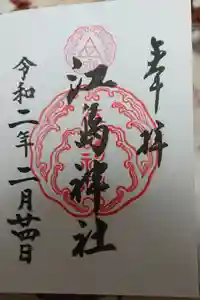 奉拝
江島神社
令和二年二月廿四日